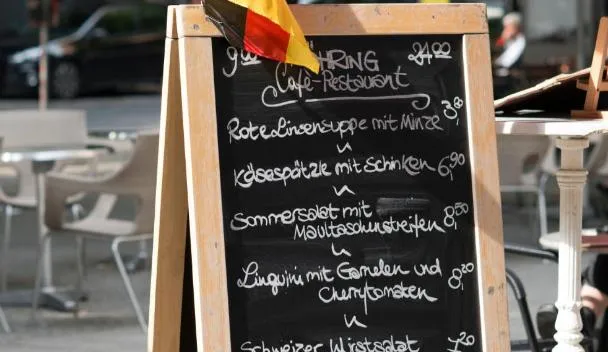 9⁰⁰ HRING 24⁰⁰
Café-Restaurant
Rote Linsensuppe mit Minze 3,80
Käsespätzle mit Schinken 6,90
Sommersalat mit
Maultaschenstreifen 8,50
Linguini mit Garnelen und
Cherrytomaten 8,20
Schweizer Wurstsalat 7,20